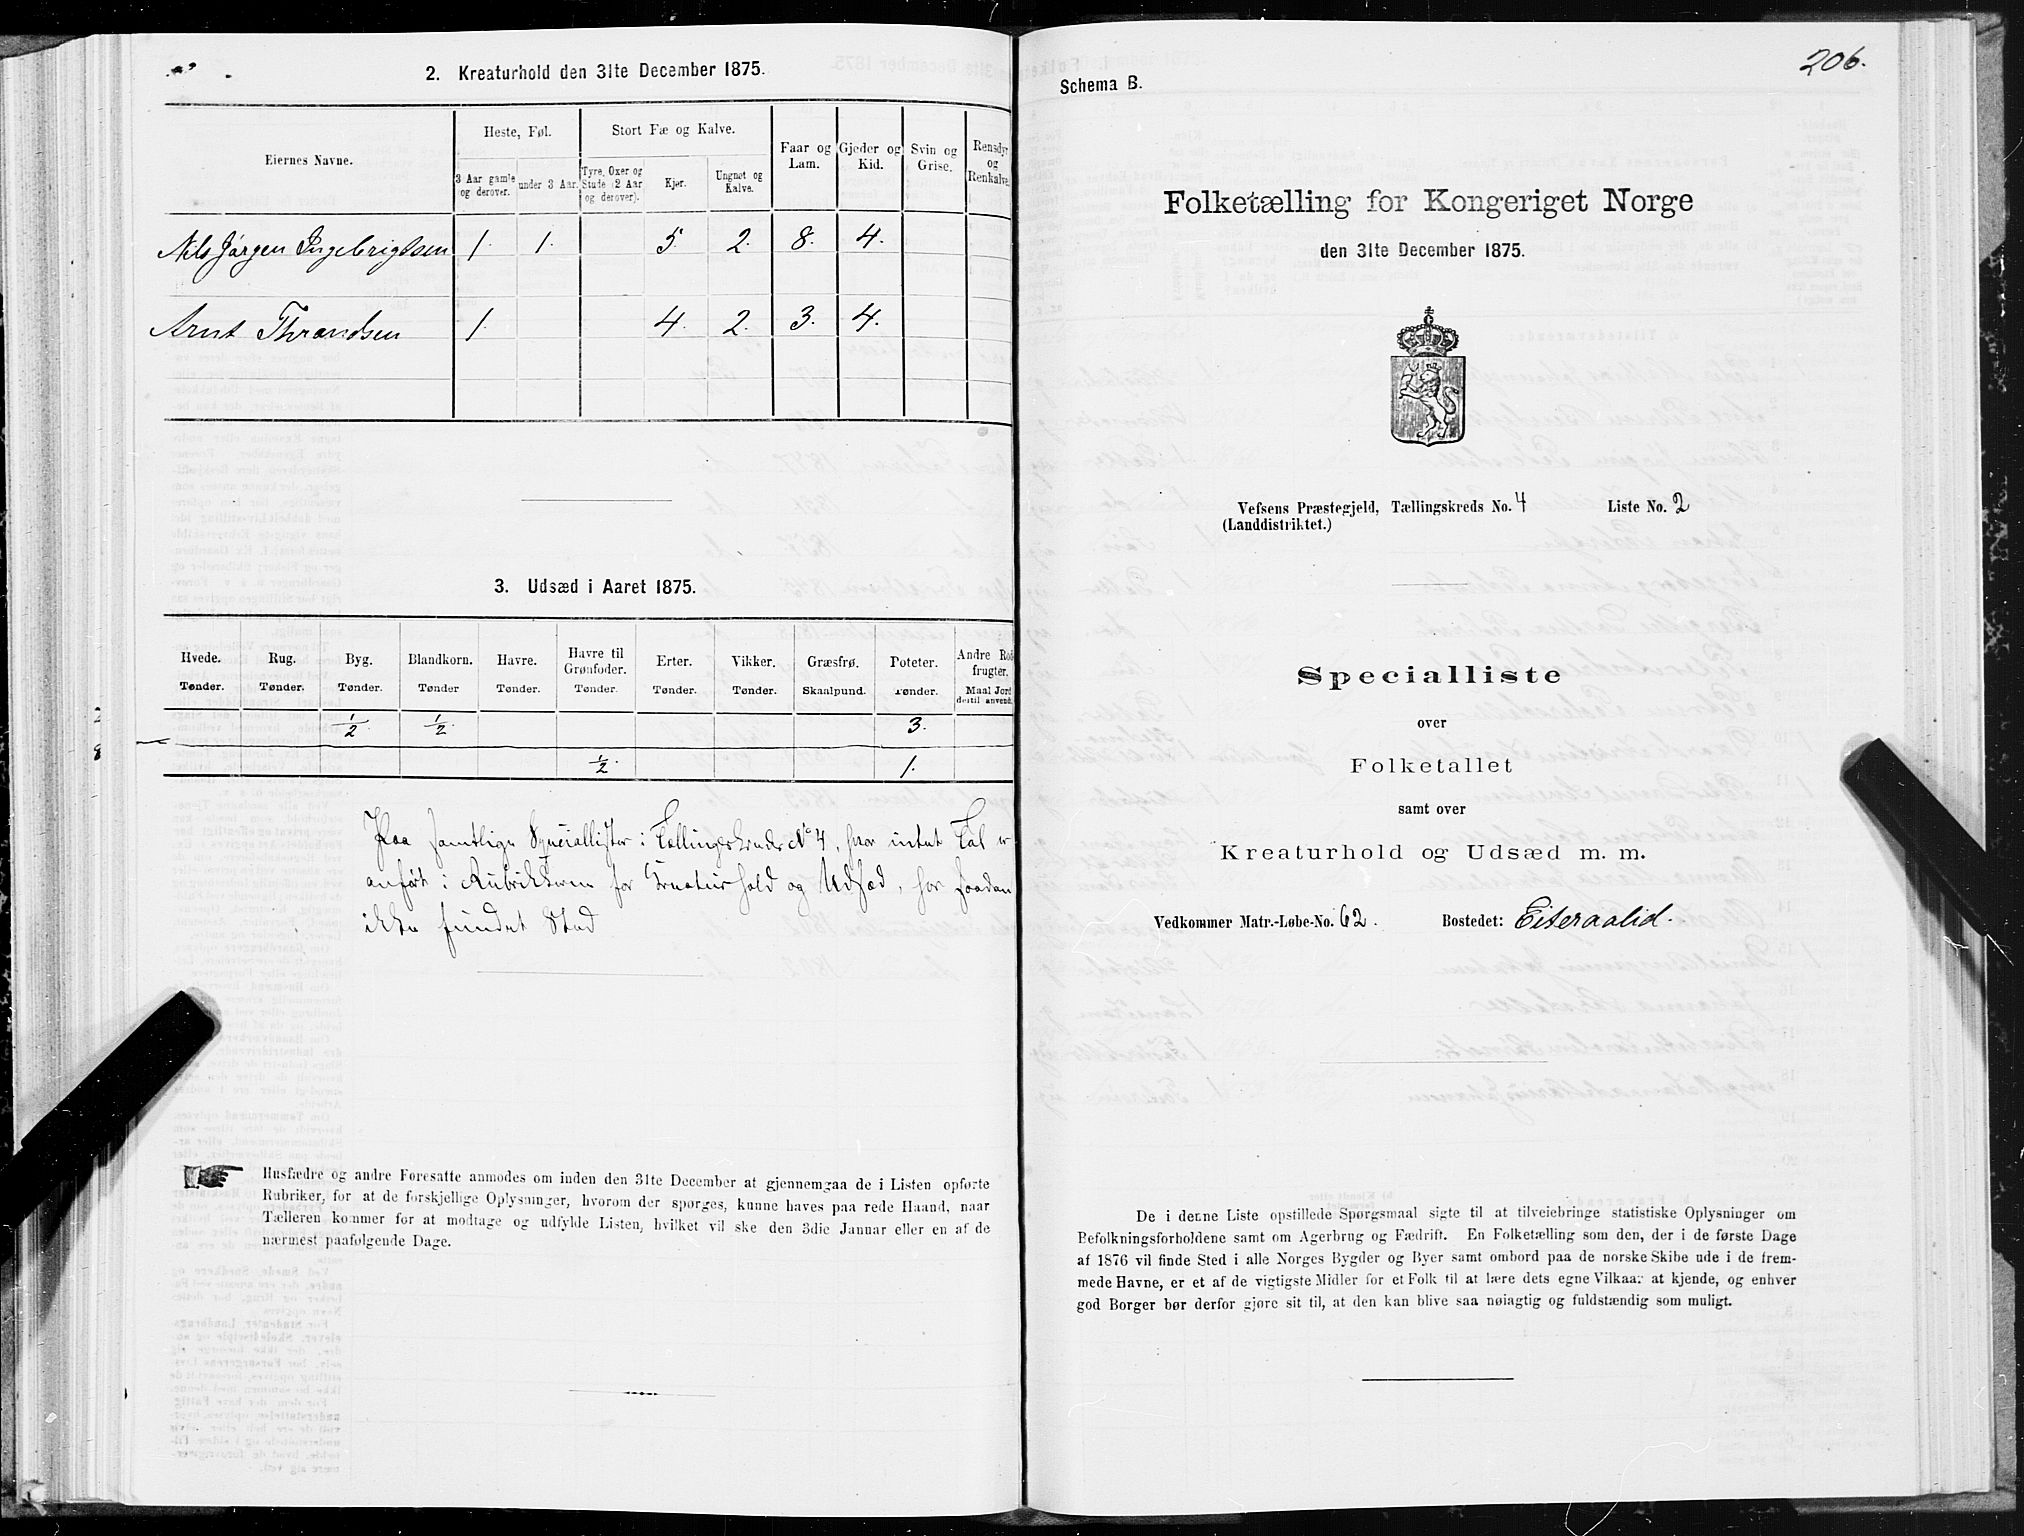 2. Kreaturhold den 31te December 1875.
Eiernes Navne.
Heste, Føl.
Stort Fæ og Kalve.
Faar og Lam.
Gjeder og Kid.
Svin og Grise.
Rensdyr og Renkalve.
3 Aar gamle og derover.
under 3 Aar.
Tyre, Oxer og Stude (2 Aar og derover).
Kjør.
Ungnøt og Kalve.
Nils Jørgen Ingebrigtsen 1. 1. 5. 2. 8. 4.
Arnt Thrandsen 1. 4. 2. 3. 4.
3. Udsæd i Aaret 1875.
Hvede. Rug. Byg. Blandkorn. Havre. Havre til Grønfoder. Erter. Vikker. Græsfrø. Poteter. Andre Rodfrugter.
Tønder. Tønder. Tønder. Tønder Tønder. Tønder. Tønder. Tønder. Skaalpund. Tønder. Maal Jord dertil anvendt.
1/2 1/2. 3.
1/2. 1.
Paa samtlige Speciallister i Tællingskreds No 4, hvor intet Tal er
anført i Rubrikkerne for Kreaturhold og Udsæd, har saadan
ikke fundet Sted
Husfædre og andre Foresatte anmodes om inden den 31te December at gjennemgaa de i Listen opførte
Rubriker, for at de forskjellige Oplysninger, hvorom der spørges, kunne haves paa rede Haand, naar
Tælleren kommer for at modtage og udfylde Listen, hvilket vil ske den 3die Januar eller en af de
nærmest paafølgende Dage.
206.
Schema B.
Folketælling for Kongeriget Norge
den 31te December 1875.
Vefsens Præstegjeld, Tællingskreds No. 4 Liste No. 2
(Landdistriktet.)
Specialliste
over
Folketallet
samt over
Kreaturhold og Udsæd m. m.
Vedkommer Matr.-Løbe-No. 62. Bostedet: Eiteraalid.
De i denne Liste opstillede Spørgsmaal sigte til at tilveiebringe statistiske Oplysninger om
Befolkningsforholdene samt om Agerbrug og Fædrift. En Folketælling som den, der i de første Dage
af 1876 vil finde Sted i alle Norges Bygder og Byer samt ombord paa de norske Skibe ude i de frem-
mede Havne, er et af de vigtigste Midler for et Folk til at lære dets egne Vilkaar at kjende, og enhver
god Borger bør derfor gjøre sit til, at den kan blive saa nøiagtig og fuldstændig som muligt.